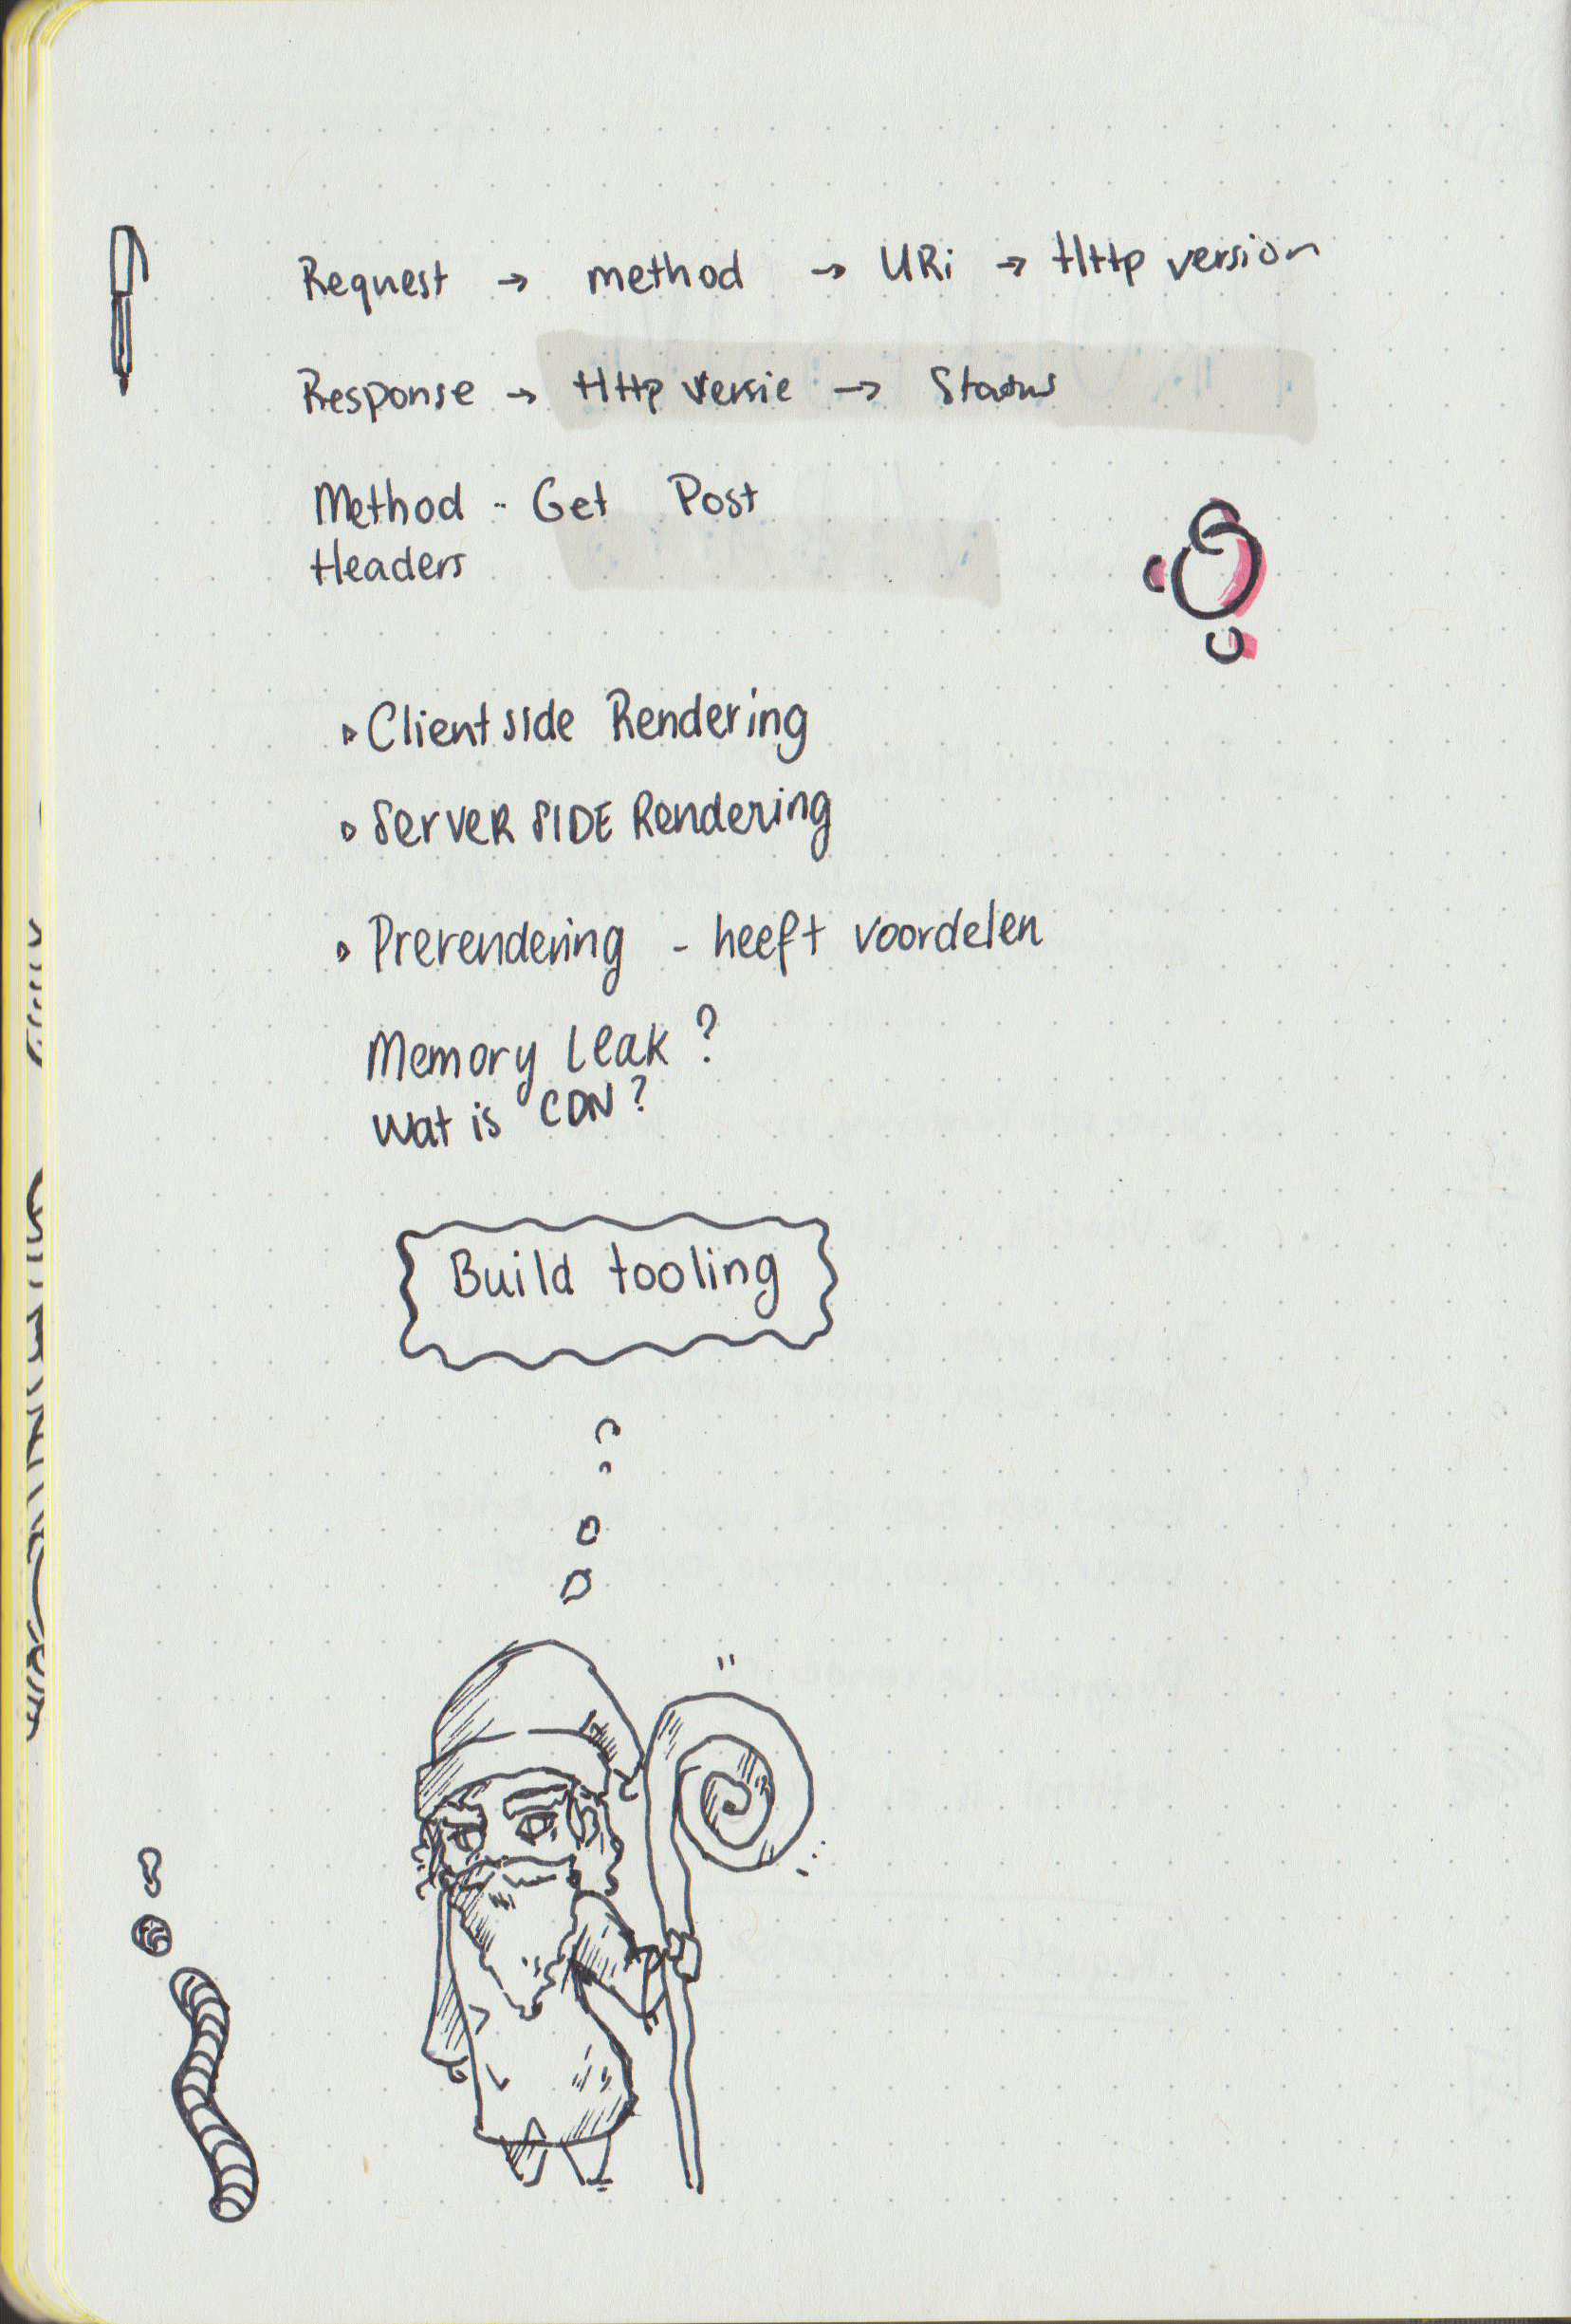 Request → method → URi → Http version
Response → Http versie → Status
Method - Get Post
Headers
Client side Rendering
Server SIDE Rendering
Prerendering - heeft voordelen
Memory Leak ?
Wat is CDN ?
Build tooling